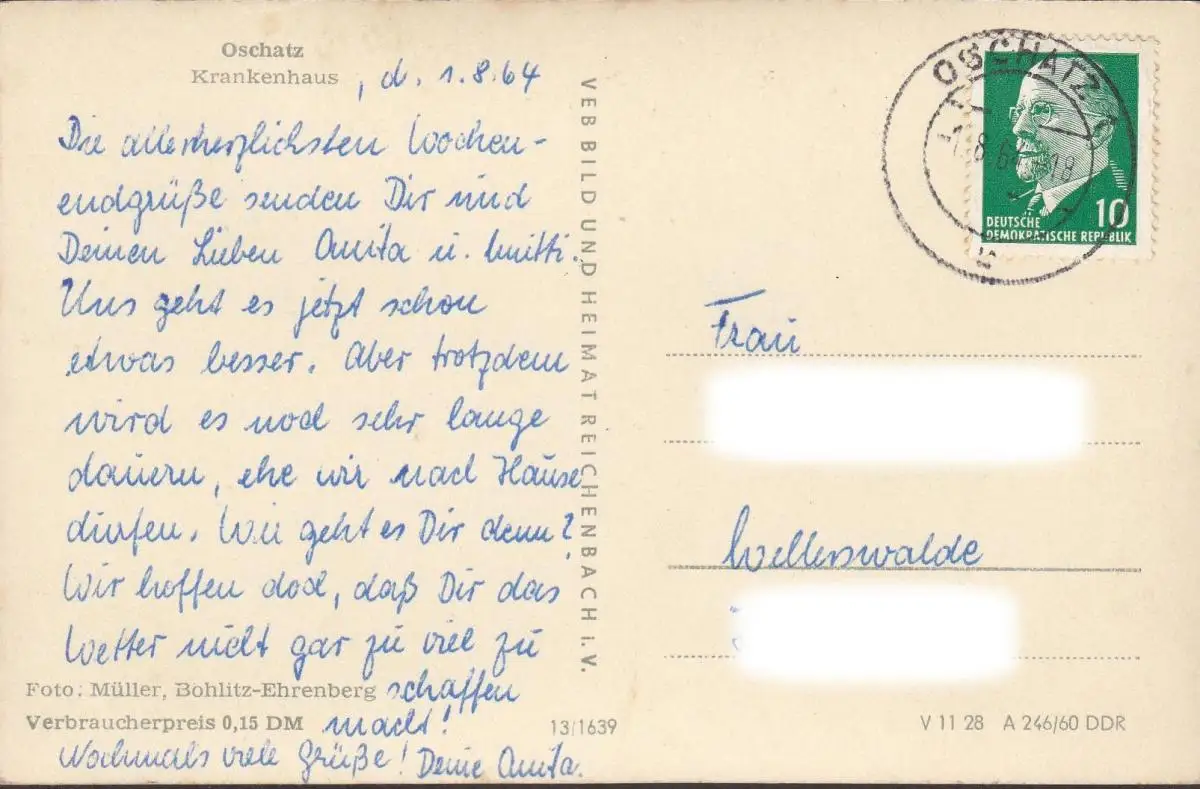 Oschatz
Krankenhaus
, d. 1.8.64
Die allerherzlichsten Wochen-
endgrüße senden Dir und
Deinen Lieben Anita u. Mutti.
Uns geht es jetzt schon
etwas besser. Aber trotzdem
wird es noch sehr lange
dauern, ehe wir nach Hause
dürfen. Wie geht es Dir denn?
Wir hoffen doch, daß Dir das
Wetter nicht gar zu viel zu
schaffen
macht!
Nochmals viele Grüße! Deine Anita.
Foto: Müller, Böhlitz-Ehrenberg
Verbraucherpreis 0,15 DM
13/1639
VEB BILD UND HEIMAT REICHENBACH i. V.
OSCHATZ
8.64-18
10
DEUTSCHE
DEMOKRATISCHE REPUBLIK
Frau
Wellerswalde
V 11 28 A 246/60 DDR